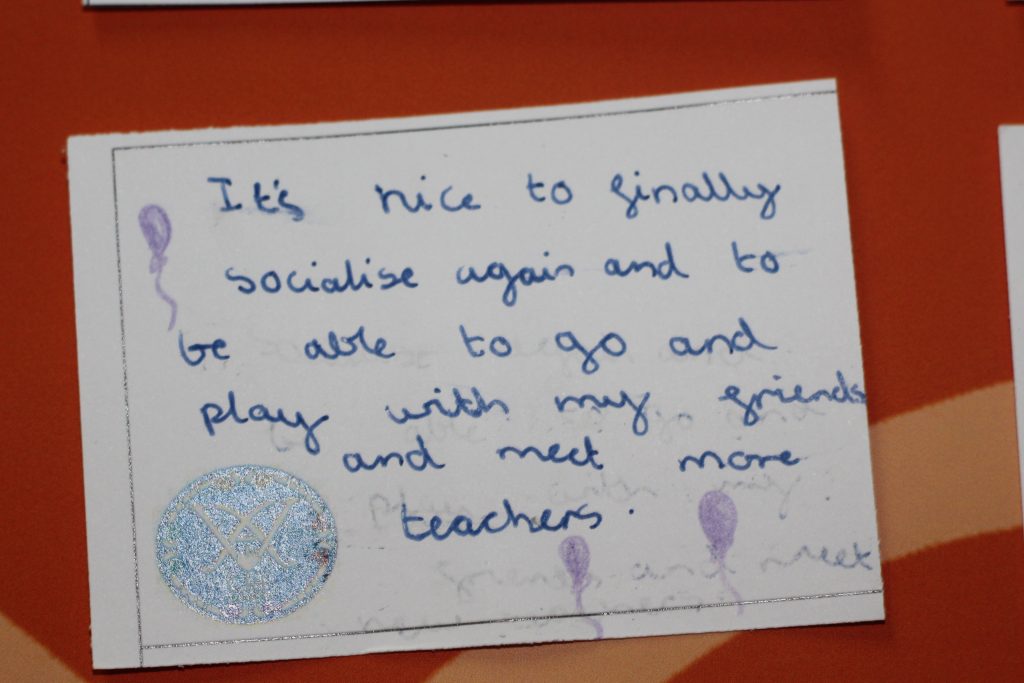 It's nice to finally
socialise again and to
be able to go and
play with my friends
and meet more
teachers.